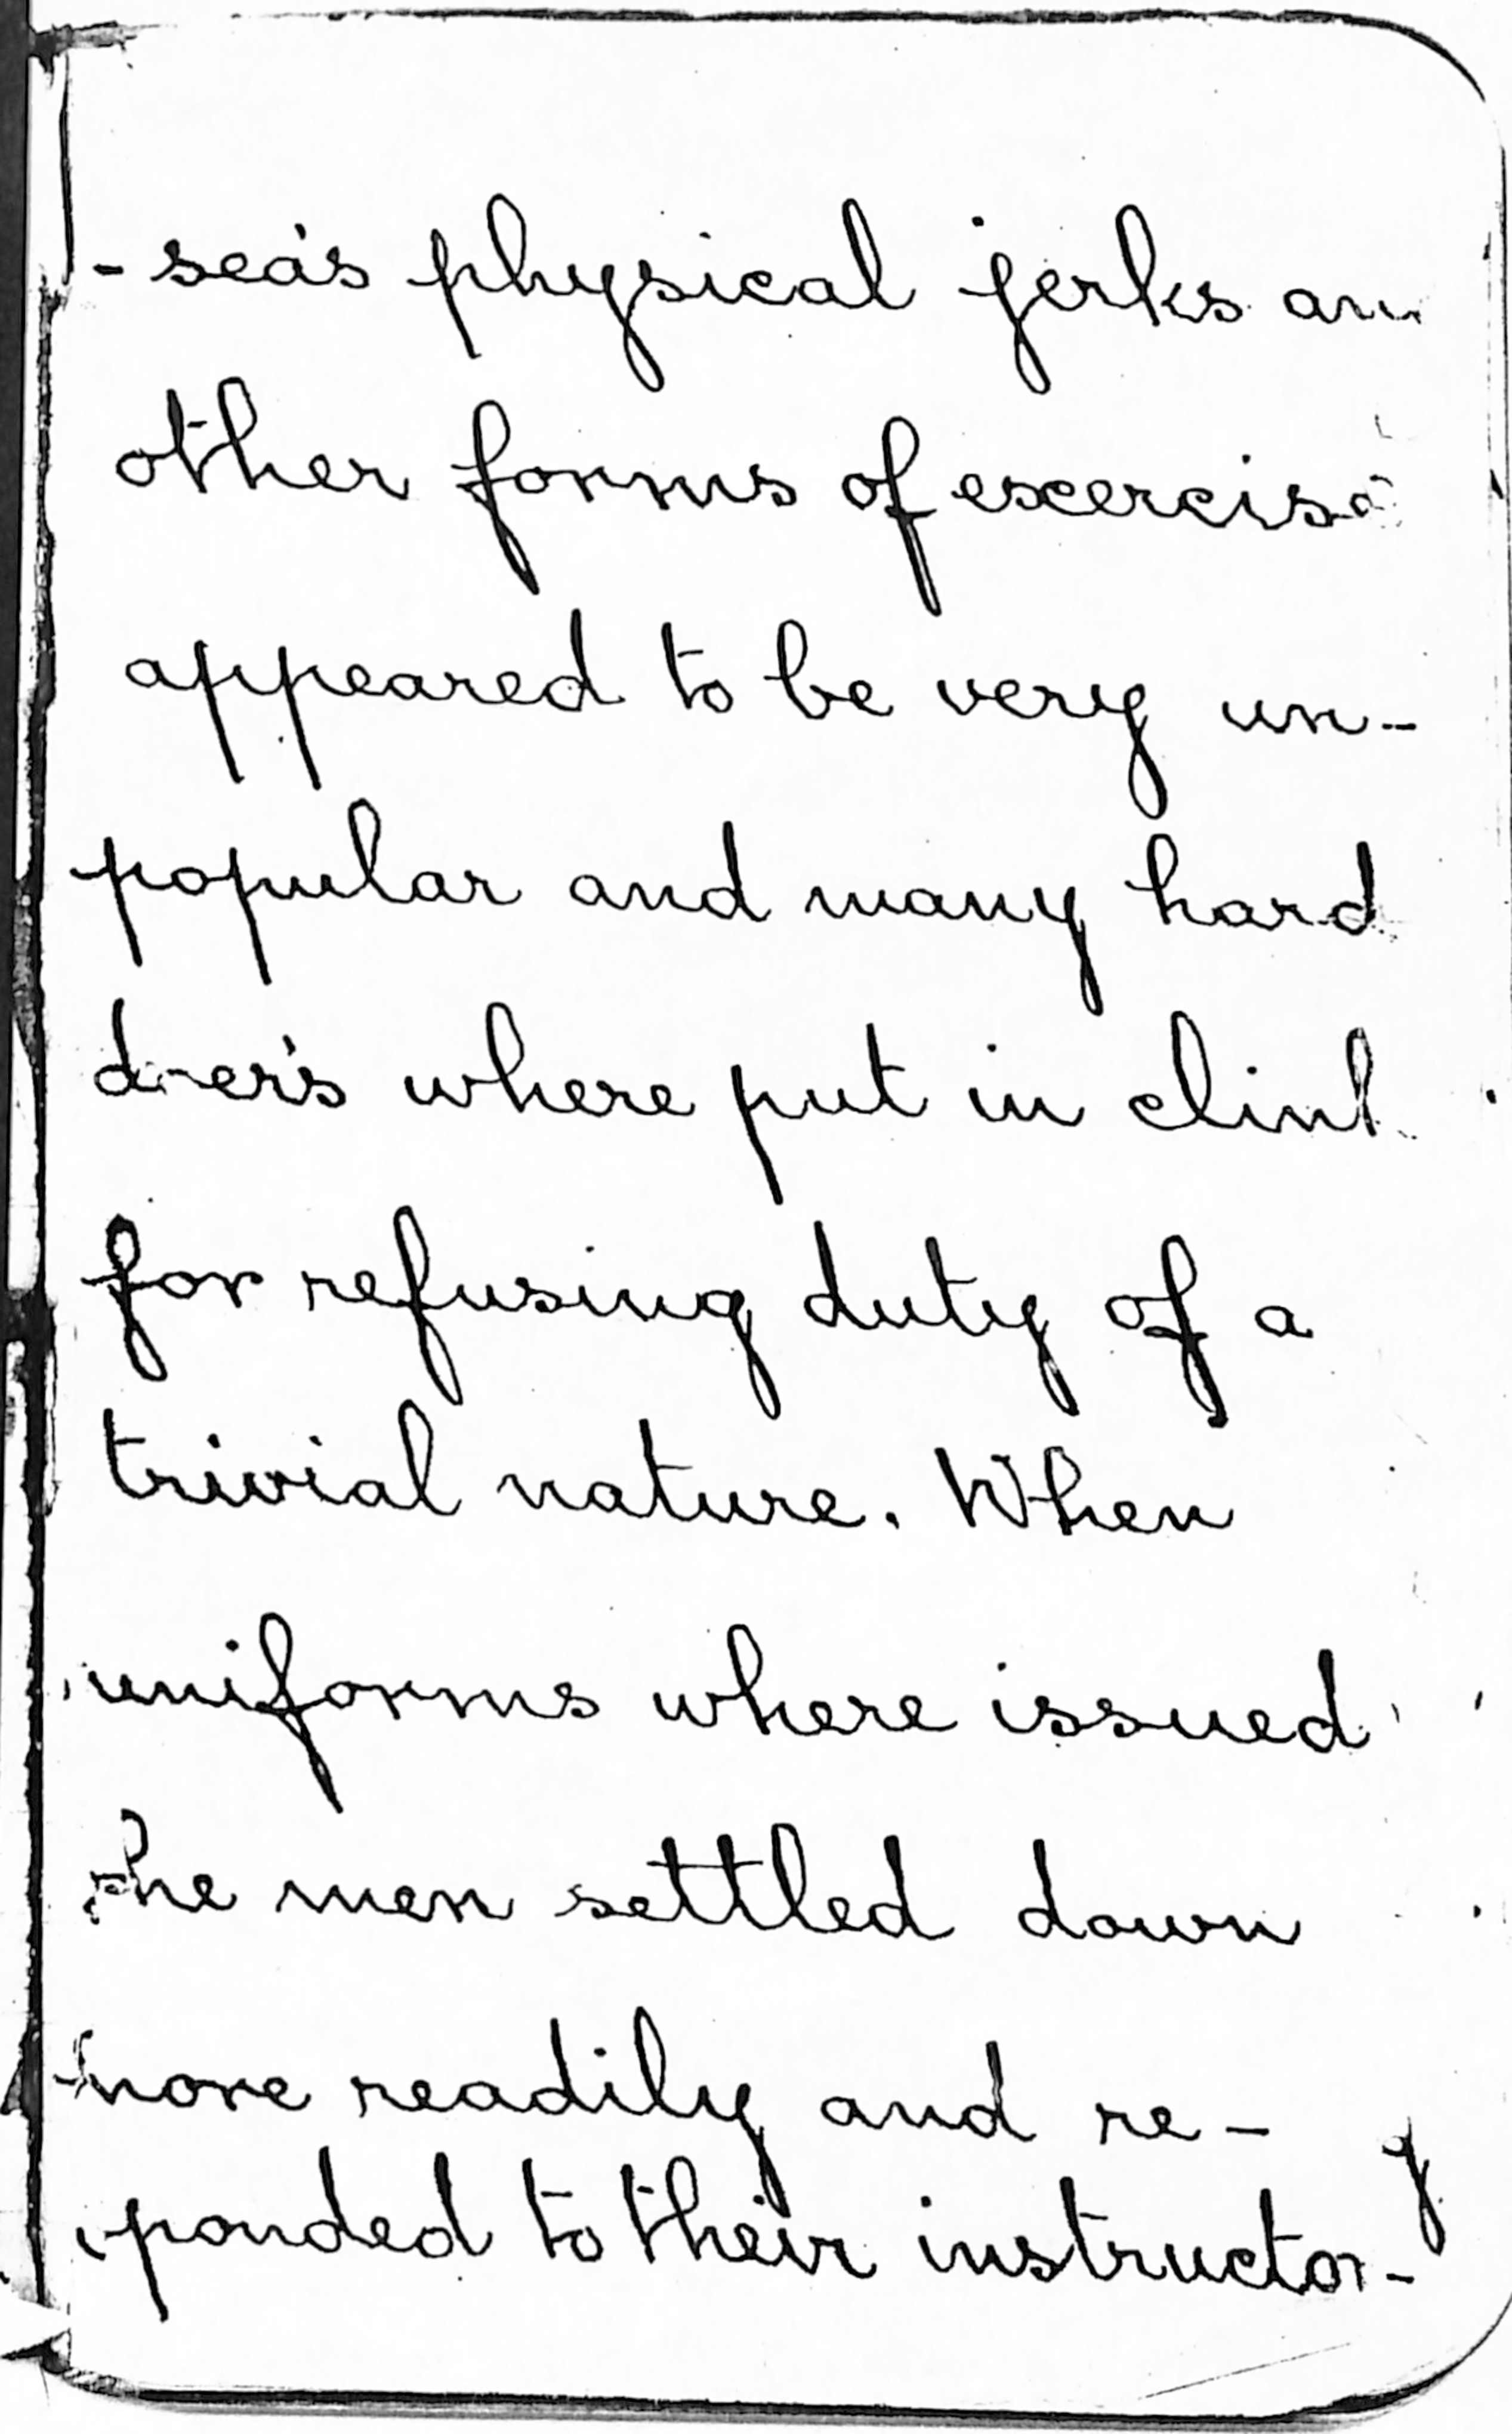 - sea's physical jerks an
other forms of exercise
appeared to be very un-
popular and many hard
doer's where put in clink
for refusing duty of a
trivial nature. When
uniforms where issued
the men settled down
more readily and re-
sponded to their instructor-
y